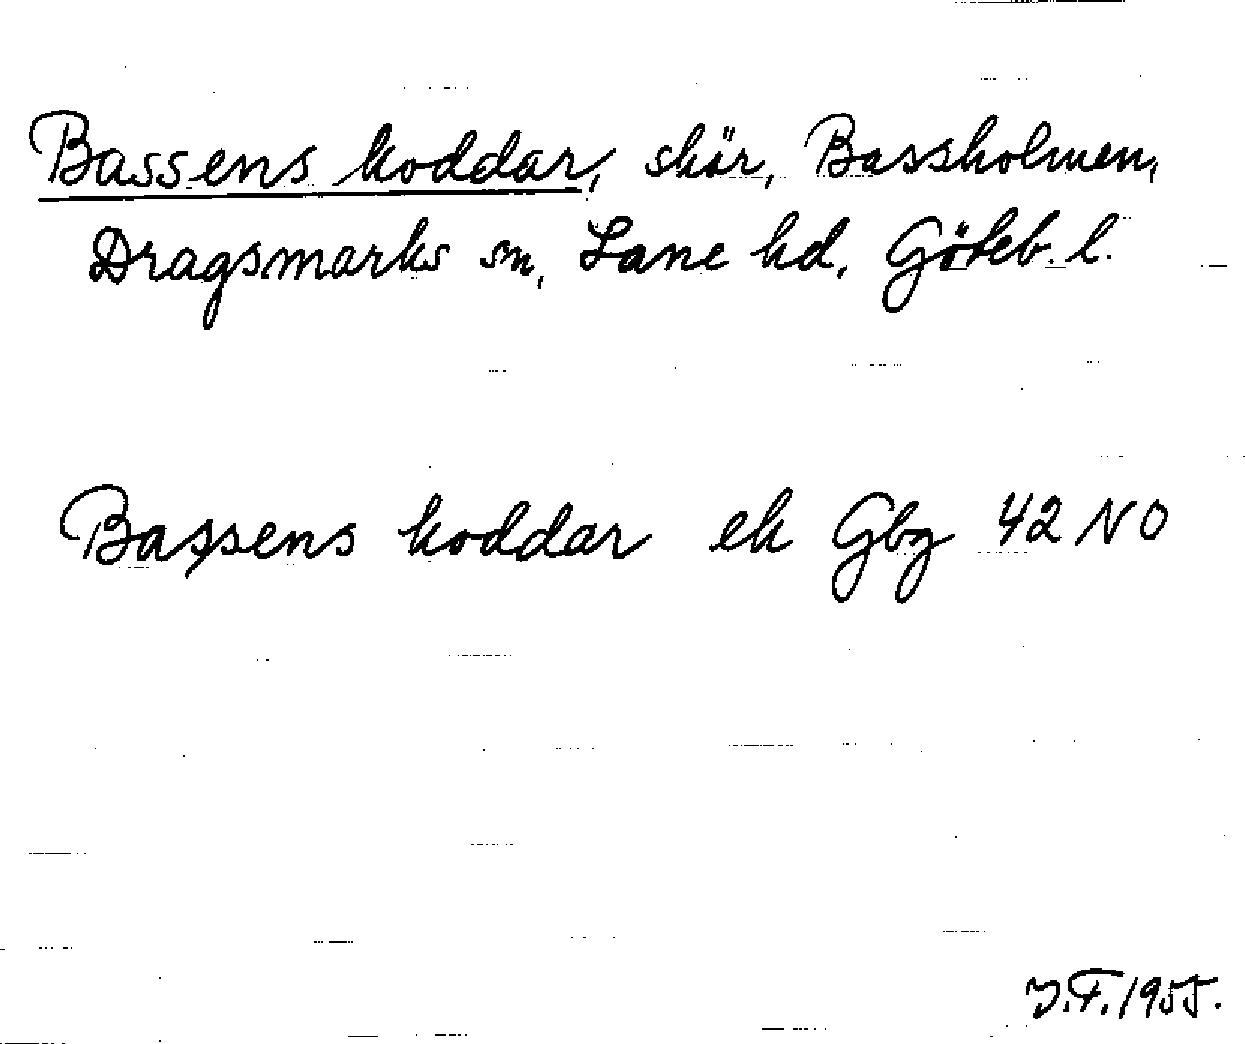 Bassens koddar, skär, Bassholmen,
Dragsmarks sn, Lane hd, Göteb. l.
Bassens koddar ek Gbg 42 NO
J.F. 1955.